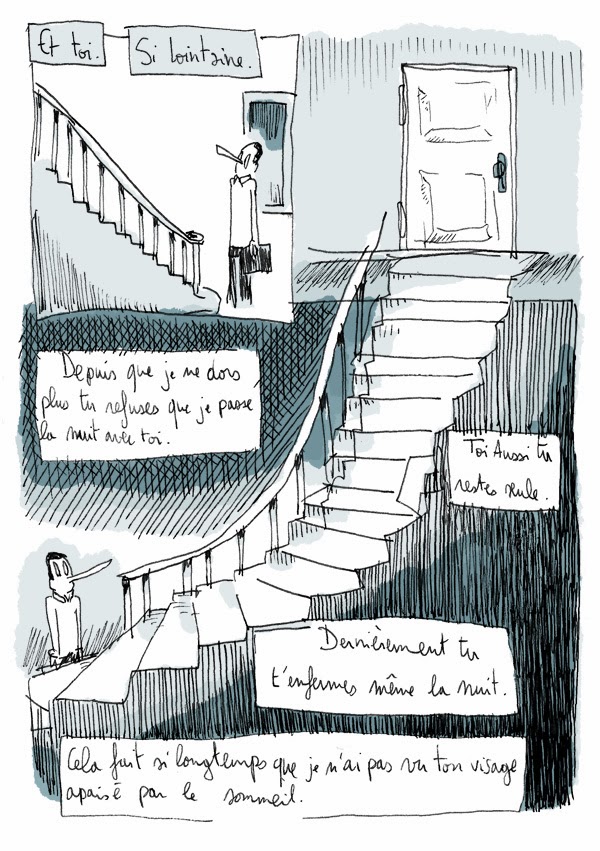 Et toi.
Si lointaine.
Depuis que je ne dors
plus tu refuses que je passe
la nuit avec toi.
Toi Aussi tu
restes seule.
Dernièrement tu
t'enfermes même la nuit.
Cela fait si longtemps que je n'ai pas vu ton visage
apaisé par le sommeil.